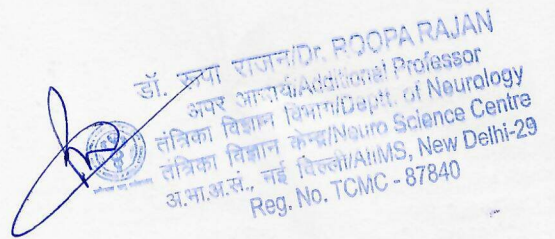 डॉ. रूपा राजन/Dr. ROOPA RAJAN
अपर आचार्य/Additional Professor
तंत्रिका विज्ञान विभाग/Deptt. of Neurology
तंत्रिका विज्ञान केन्द्र/Neuro Science Centre
अ.भा.अ.सं., नई दिल्ली/AIIMS, New Delhi-29
Reg. No. TCMC - 87840